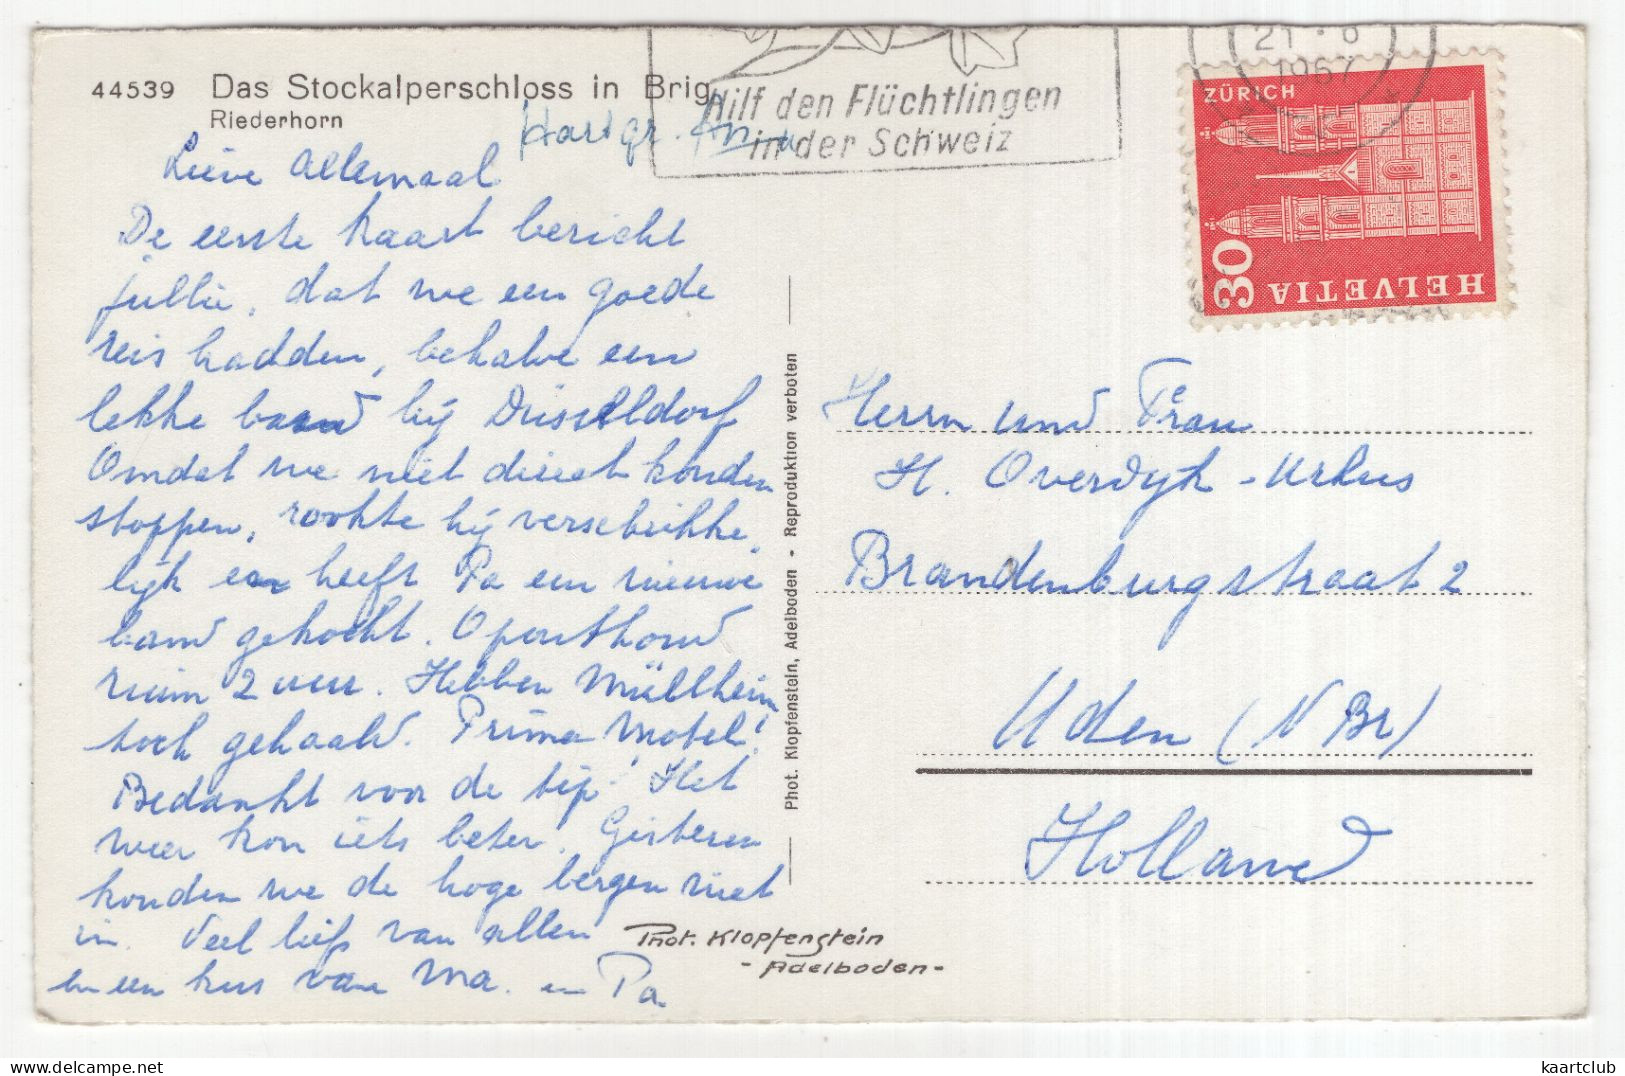 44539 Das Stockalperschloss in Brig
Riederhorn
Hilf den Flüchtlingen
in der Schweiz
21 · 8
1967
ZÜRICH
30
HELVETIA
Hartgr.
Lieve Allemaal
De eerste kaart bericht
jullie, dat we een goede
reis hadden, behalve een
lekke band bij Düsseldorf
Omdat we niet direct konden
stoppen, rookte hij verschrikke
lijk en heeft Pa een nieuwe
band gekocht. Oponthoud
ruim 2 uur. Hebben Müllheim
toch gehaald. Prima Motel!
Bedankt voor de tip! Het
weer kon iets beter. Gisteren
konden we de hoge bergen niet
in. Veel liefs van allen
en een kus van Ma. en Pa
Phot. Klopfenstein, Adelboden - Reproduktion verboten
Phot. Klopfenstein
- Adelboden -
Herrn und Frau
H. Overdijk - Urlus
Brandenburgstraat 2
Uden (N Br)
Holland
kaartclub